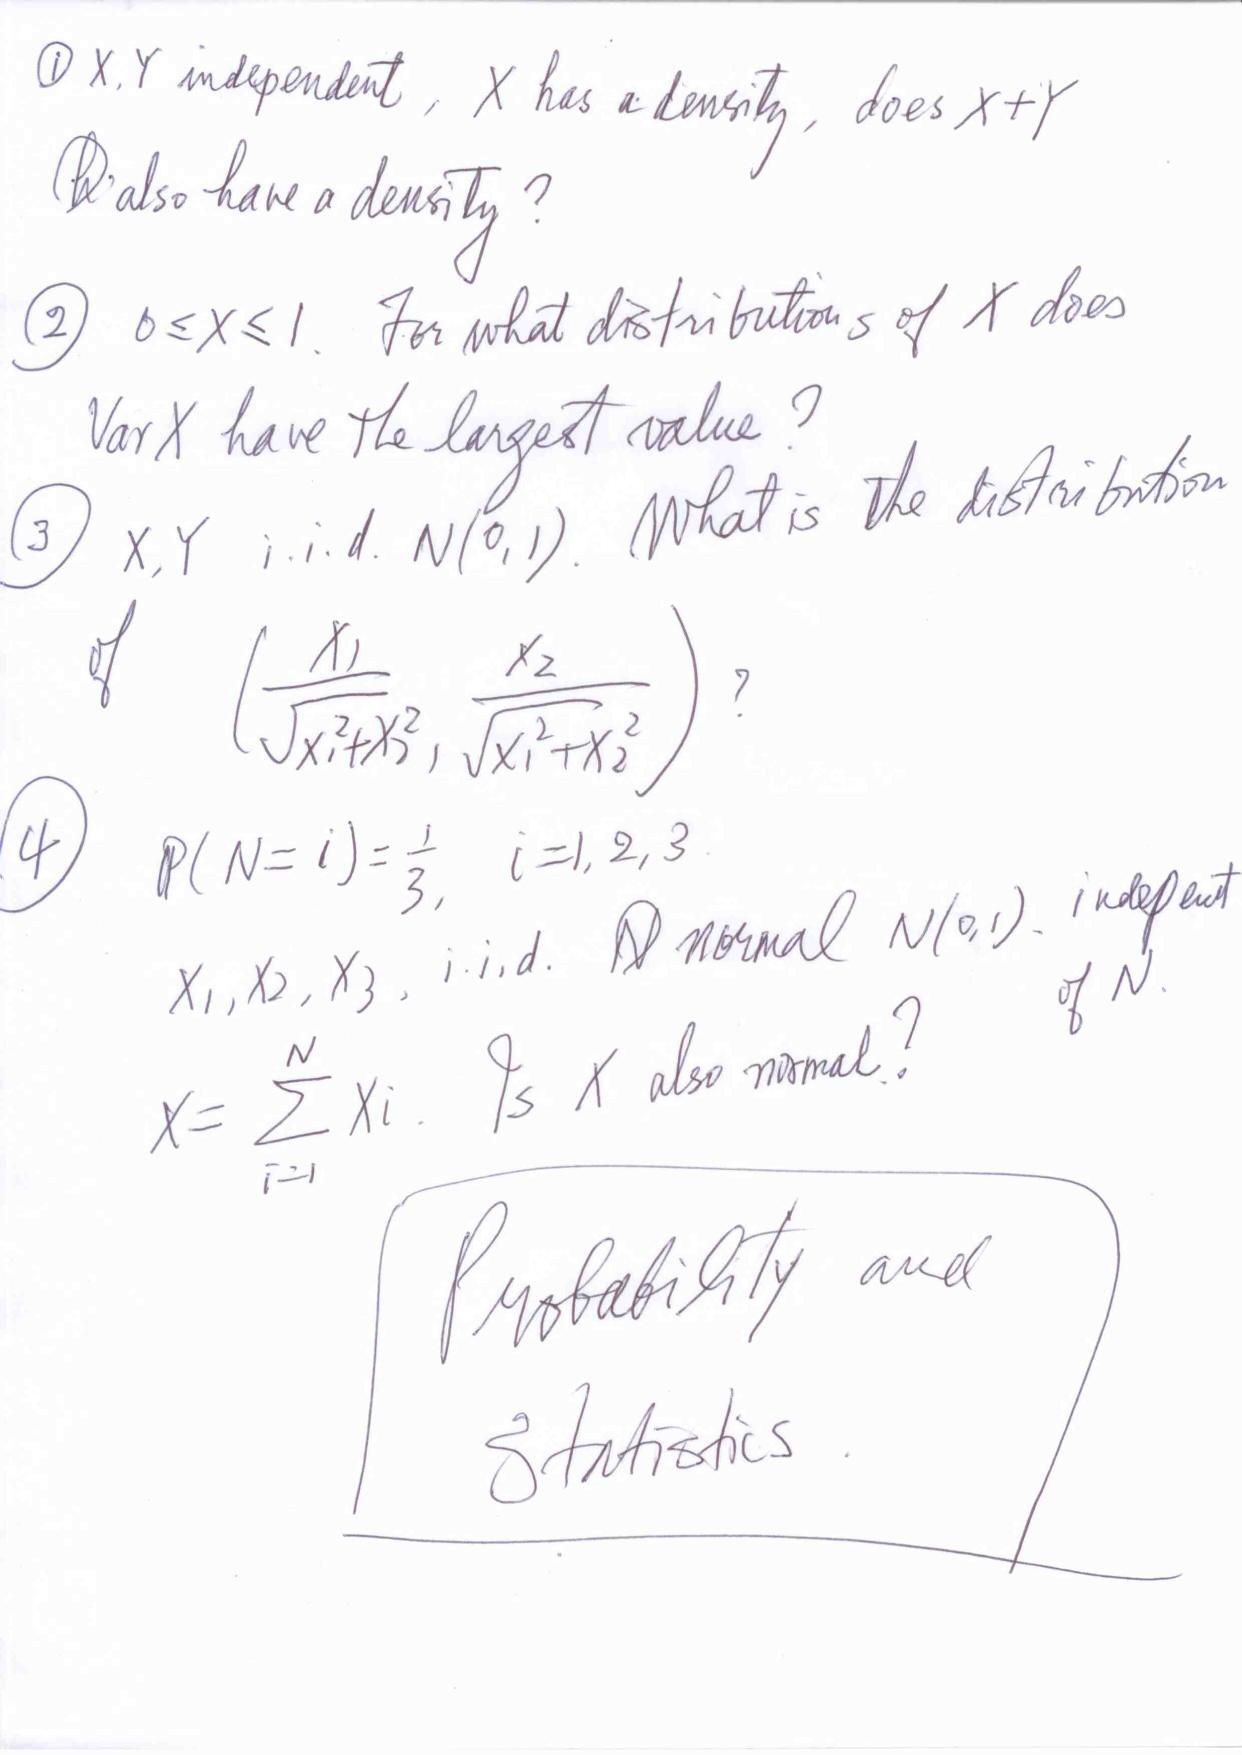 ① X, Y independent, X has a density, does X+Y
also have a density?
② 0≤X≤1. For what distributions of X does
Var X have the largest value?
③ X, Y i.i.d. N(0,1). What is the distribution
of (X₁/√(X₁²+X₂²), X₂/√(X₁²+X₂²))?
④ P(N=i)=1/3, i=1,2,3
X₁, X₂, X₃, i.i.d. normal N(0,1). indepent
of N.
X = ∑_{i=1}^{N} Xi. Is X also normal?
Probability and
Statistics.